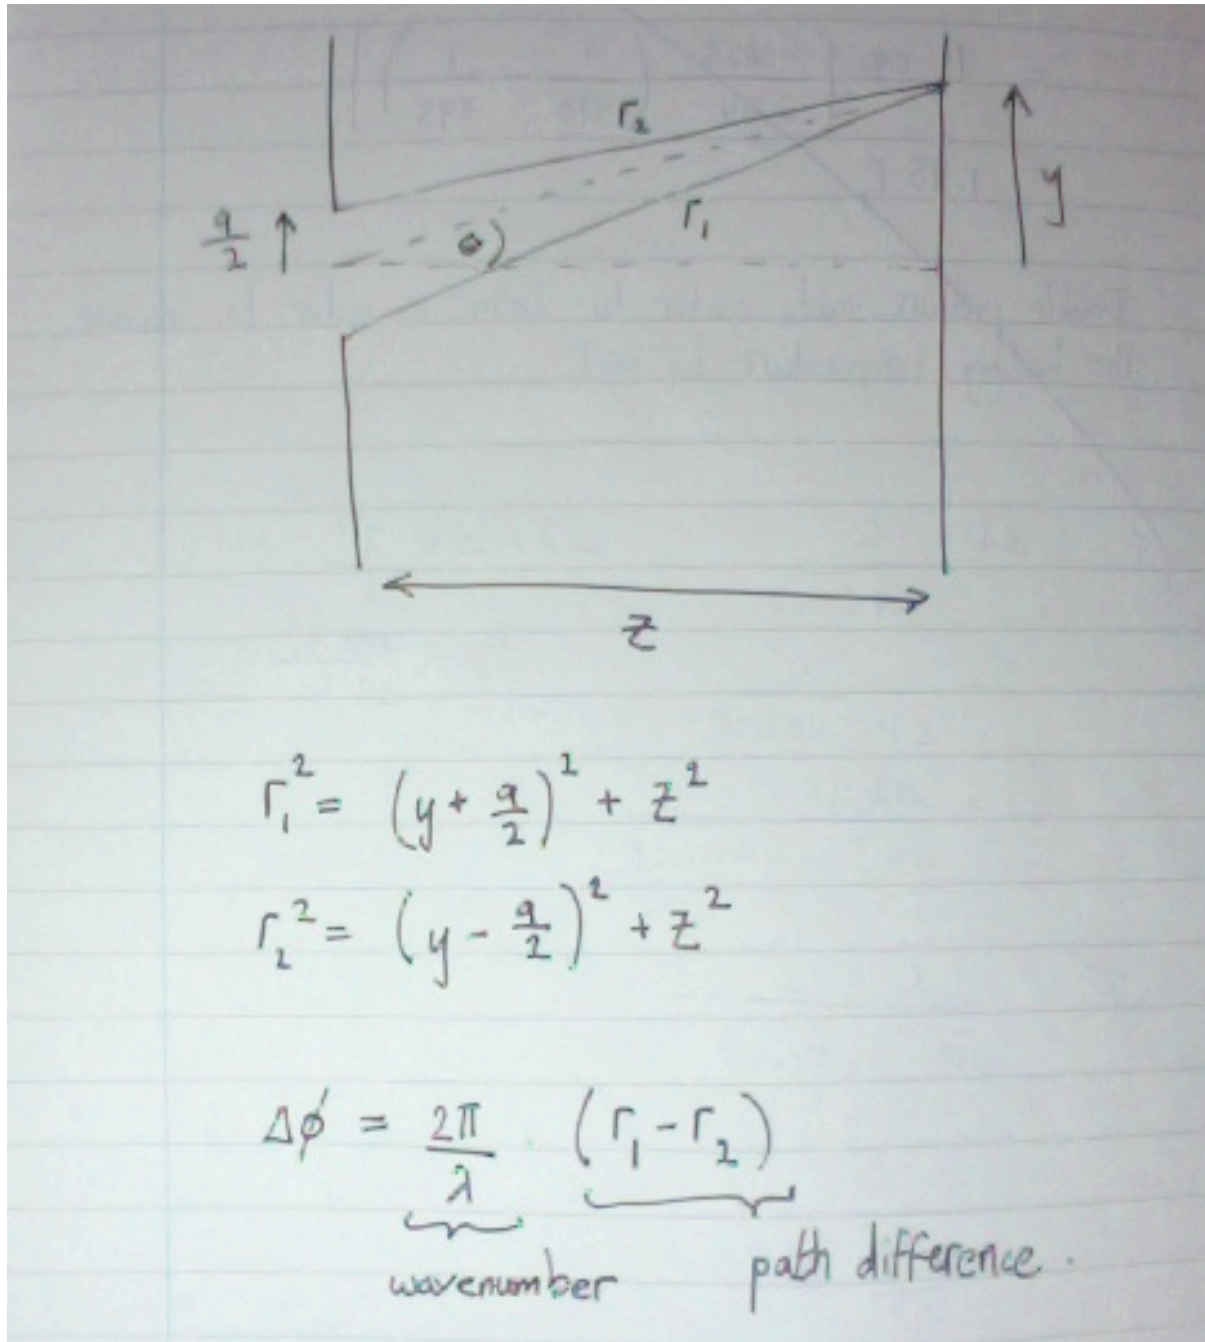 r₂
a/2
θ
r₁
y
z
r₁² = (y + a/2)² + z²
r₂² = (y - a/2)² + z²
Δϕ = 2π/λ · (r₁ - r₂)
wavenumber path difference.